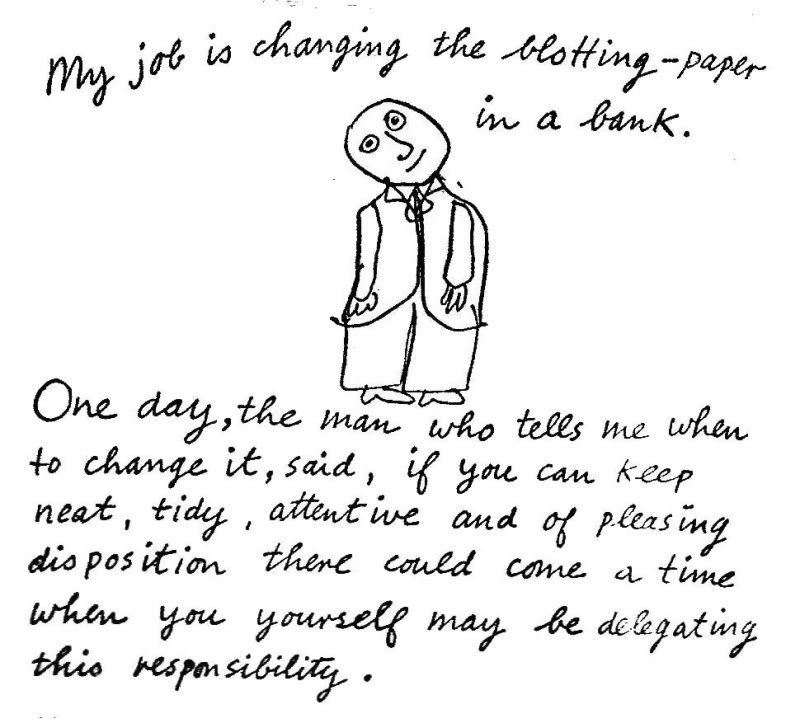 My job is changing the blotting-paper
in a bank.
One day, the man who tells me when
to change it, said, if you can keep
neat, tidy, attentive and of pleasing
disposition there could come a time
when you yourself may be delegating
this responsibility.